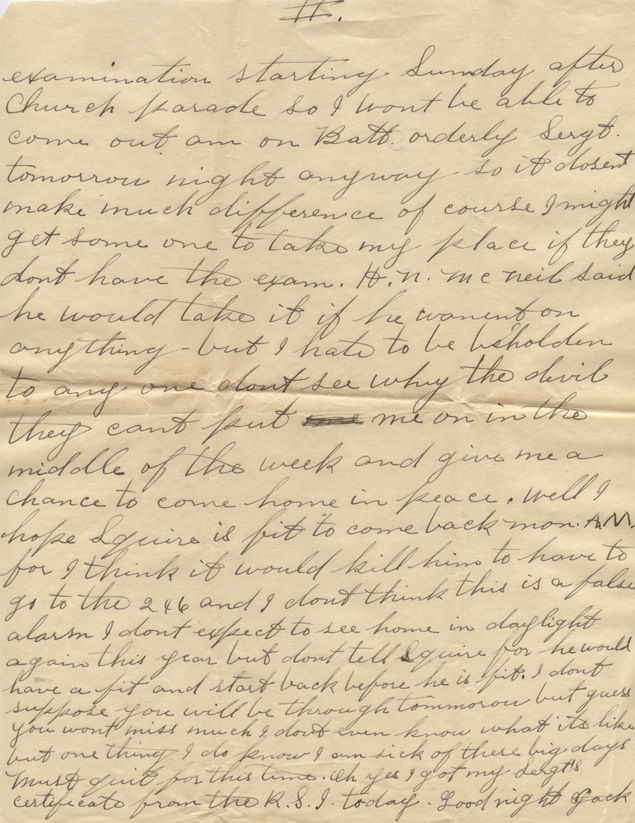 II.
examination starting Sunday after
Church parade so I wont be able to
come out am on Batt. orderly Sergt.
tomorrow night anyway so it dosent
make much difference of course I might
get some one to take my place if they
dont have the exam. H. N. McNeil said
he would take it if he wanent on
anything - but I hate to be beholden
to any one dont see why the devil
they cant put me on in the
middle of the week and give me a
chance to come home in peace. Well I
hope Squire is fit to come back mon. A.M.
for I think it would kill him to have to
go to the 246 and I dont think this is a false
alarm I dont expect to see home in daylight
again this year but dont tell Squire for he would
have a fit and start back before he is fit. I dont
suppose you will be through tommorow but guess
you wont miss much I dont even know what its like
but one thing I do know I am sick of these big days
must quit for this time. Oh yes I got my Sergt's
certificate from the R.S.I. today. Good night Jack